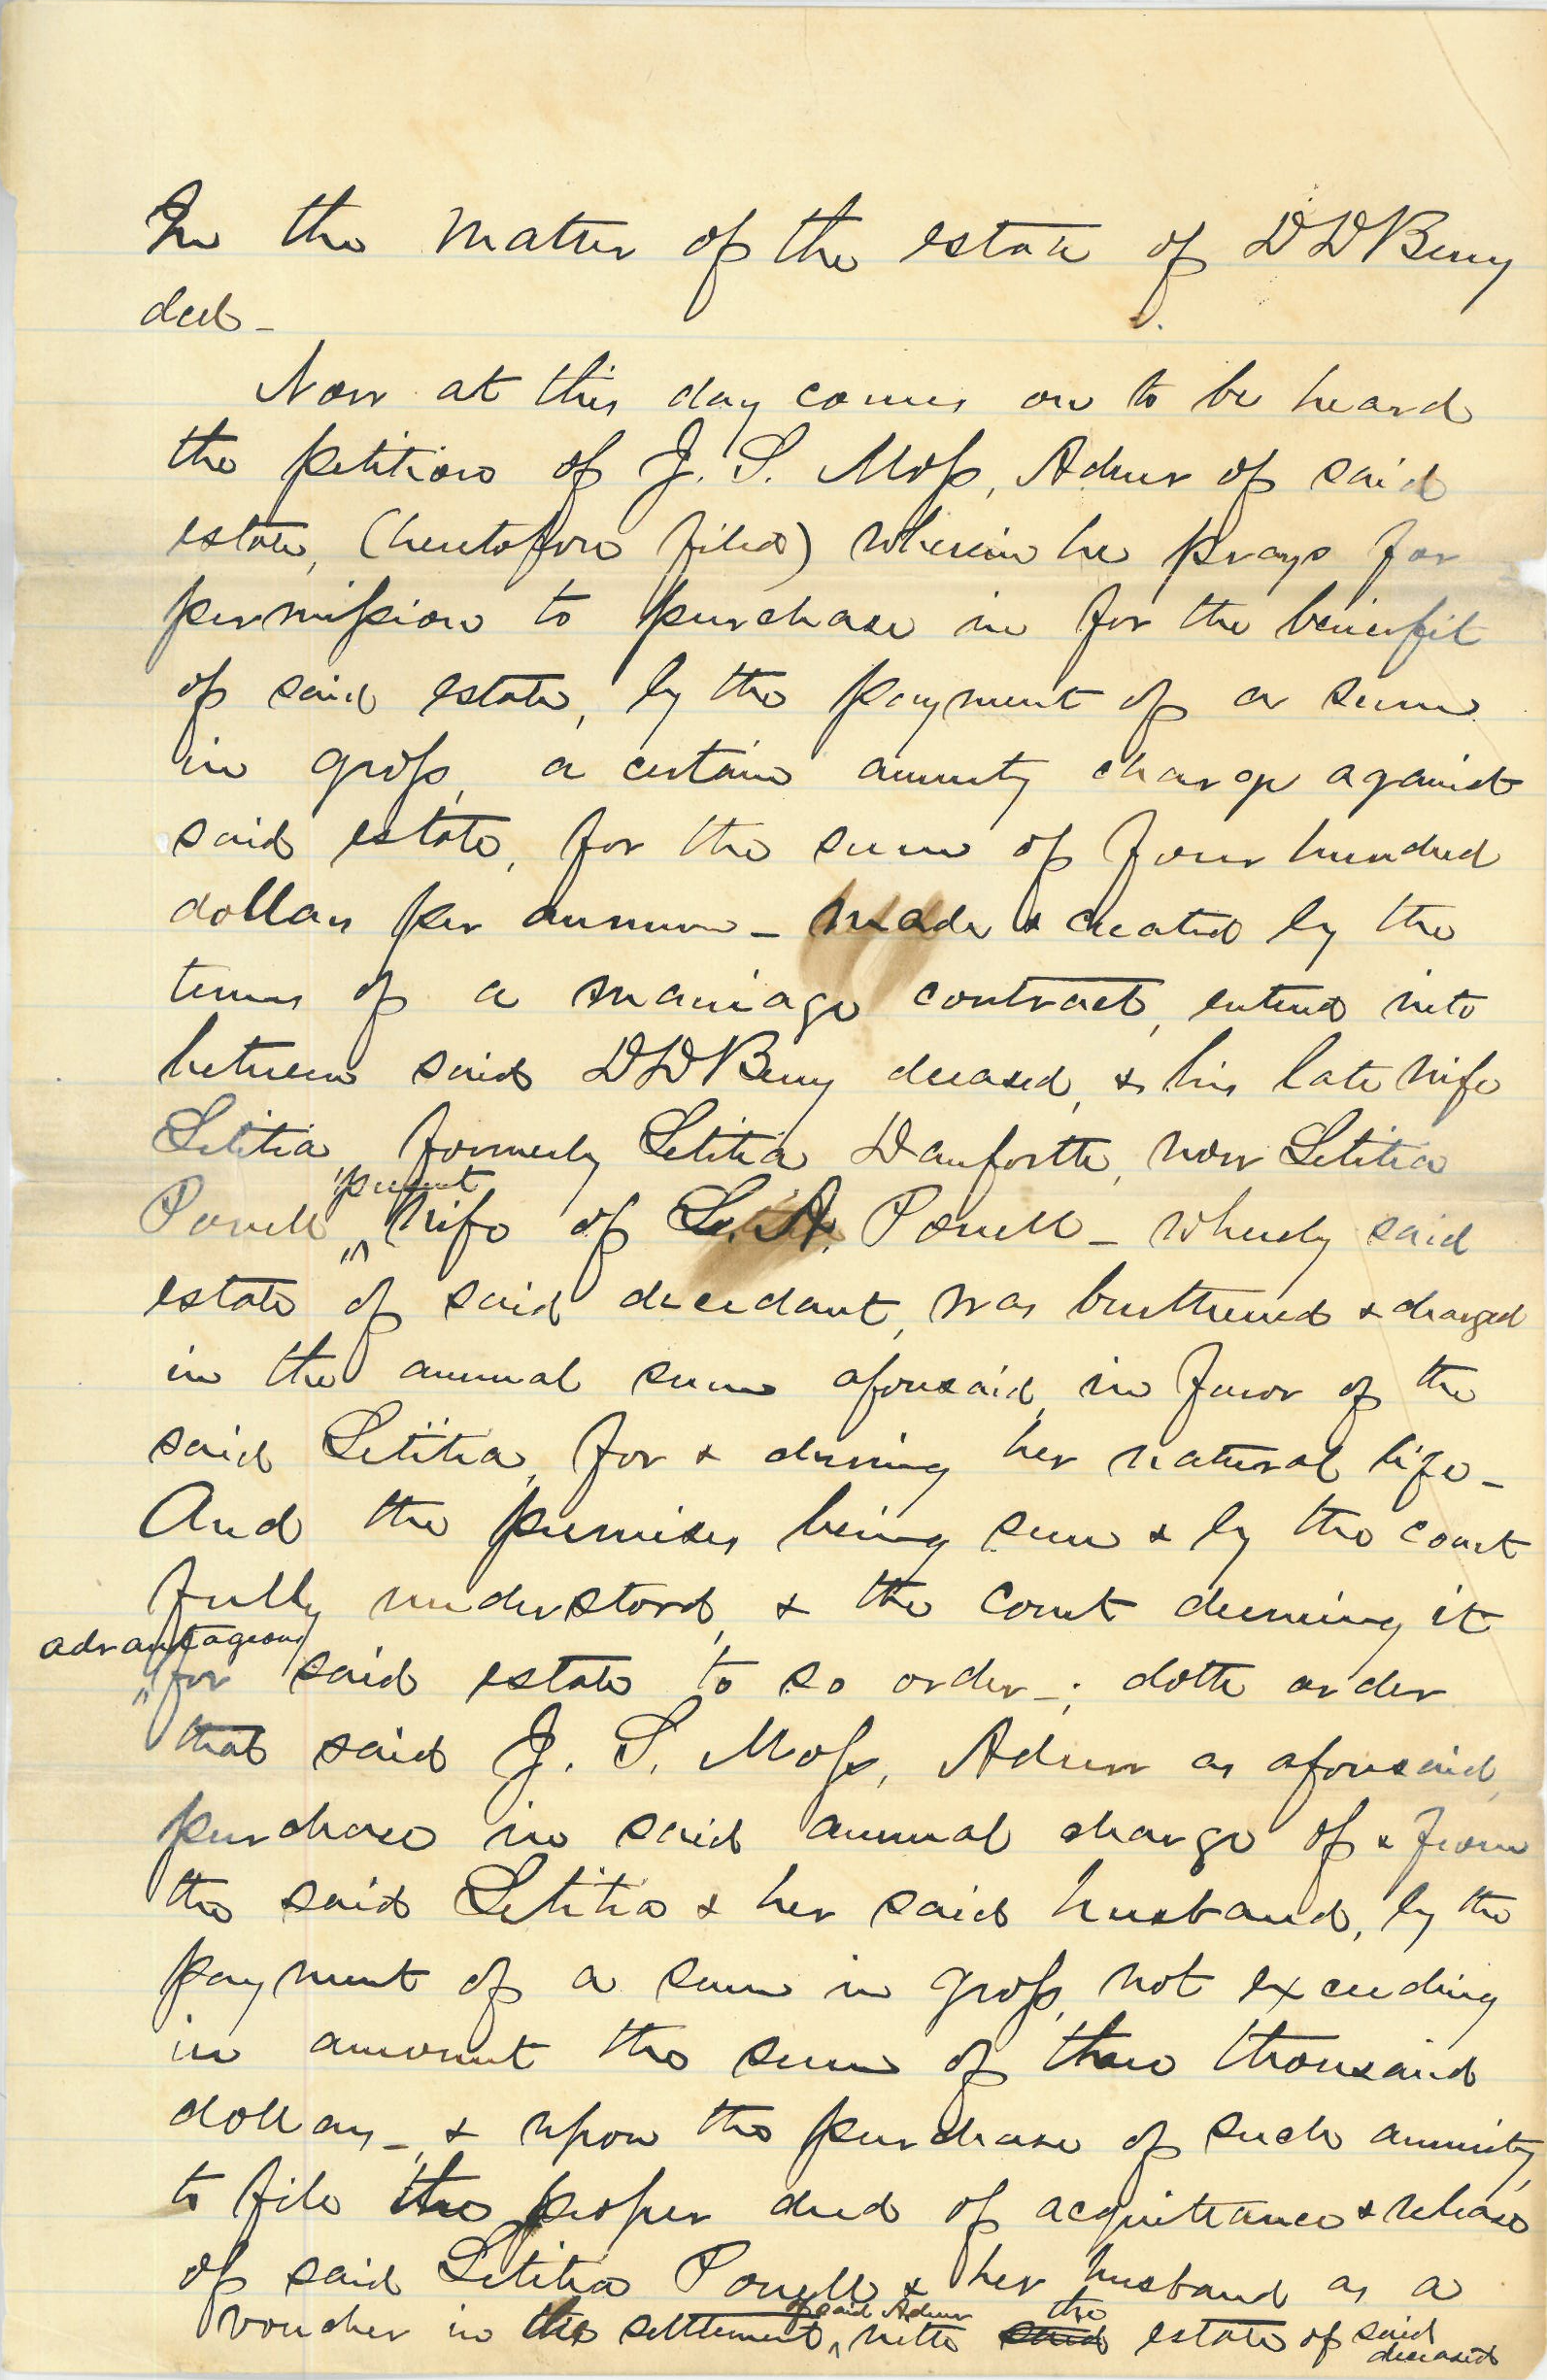 In the matter of the estate of D D Berry
decd -
Now at this day comes on to be heard
the petition of J. S. Moss, Admr of said
estate, (heretofore filed) wherein he prays for
permission to purchase in for the benefit
of said estate, by the payment of a sum
in gross, a certain annuity charge against
said estate, for the sum of four hundred
dollars per annum - made & created by the
terms of a marriage contract, entered into
between said D D Berry deceased, & his late wife
Letitia, formerly Letitia Danforth, now Letitia
Powell present wife of L. A. Powell - whereby said
estate of said decedant, was burthened & charged
in the annual sum aforesaid, in favor of the
said Letitia, for & during her natural life -
And the premises being seen & by the court
fully understood, & the court deeming it
advantageous for said estate to so order -; doth order
that said J. S. Moss, Admr as aforesaid,
purchase in said annual charge of & from
the said Letitia & her said husband, by the
payment of a sum in gross, not exceeding
in amount the sum of three thousand
dollars -, & upon the purchase of such annuity,
to file the proper deed of acquittance & release
of said Letitia Powell & her husband as a
voucher in the settlement of said Admr with said the estate of said deceased